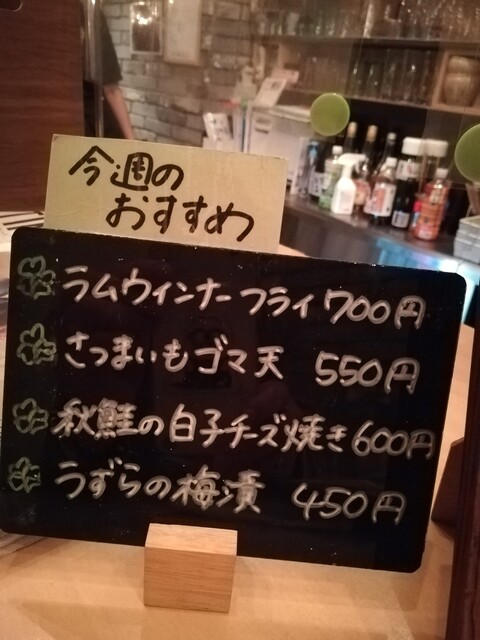 今週の
おすすめ
ラムウィンナーフライ700円
さつまいもゴマ天 550円
秋鮭の白子チーズ焼き600円
うずらの梅漬 450円